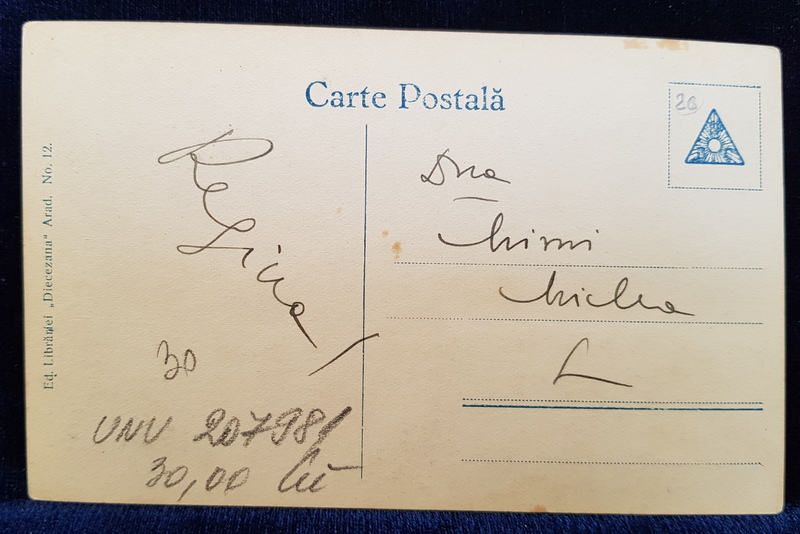 Carte Postală
Ed. Librăriei „Diecezana" Arad. No. 12.
20
Regina
30
UNU 207981
30,00 lei
Dna
Mimi
Miclea
L